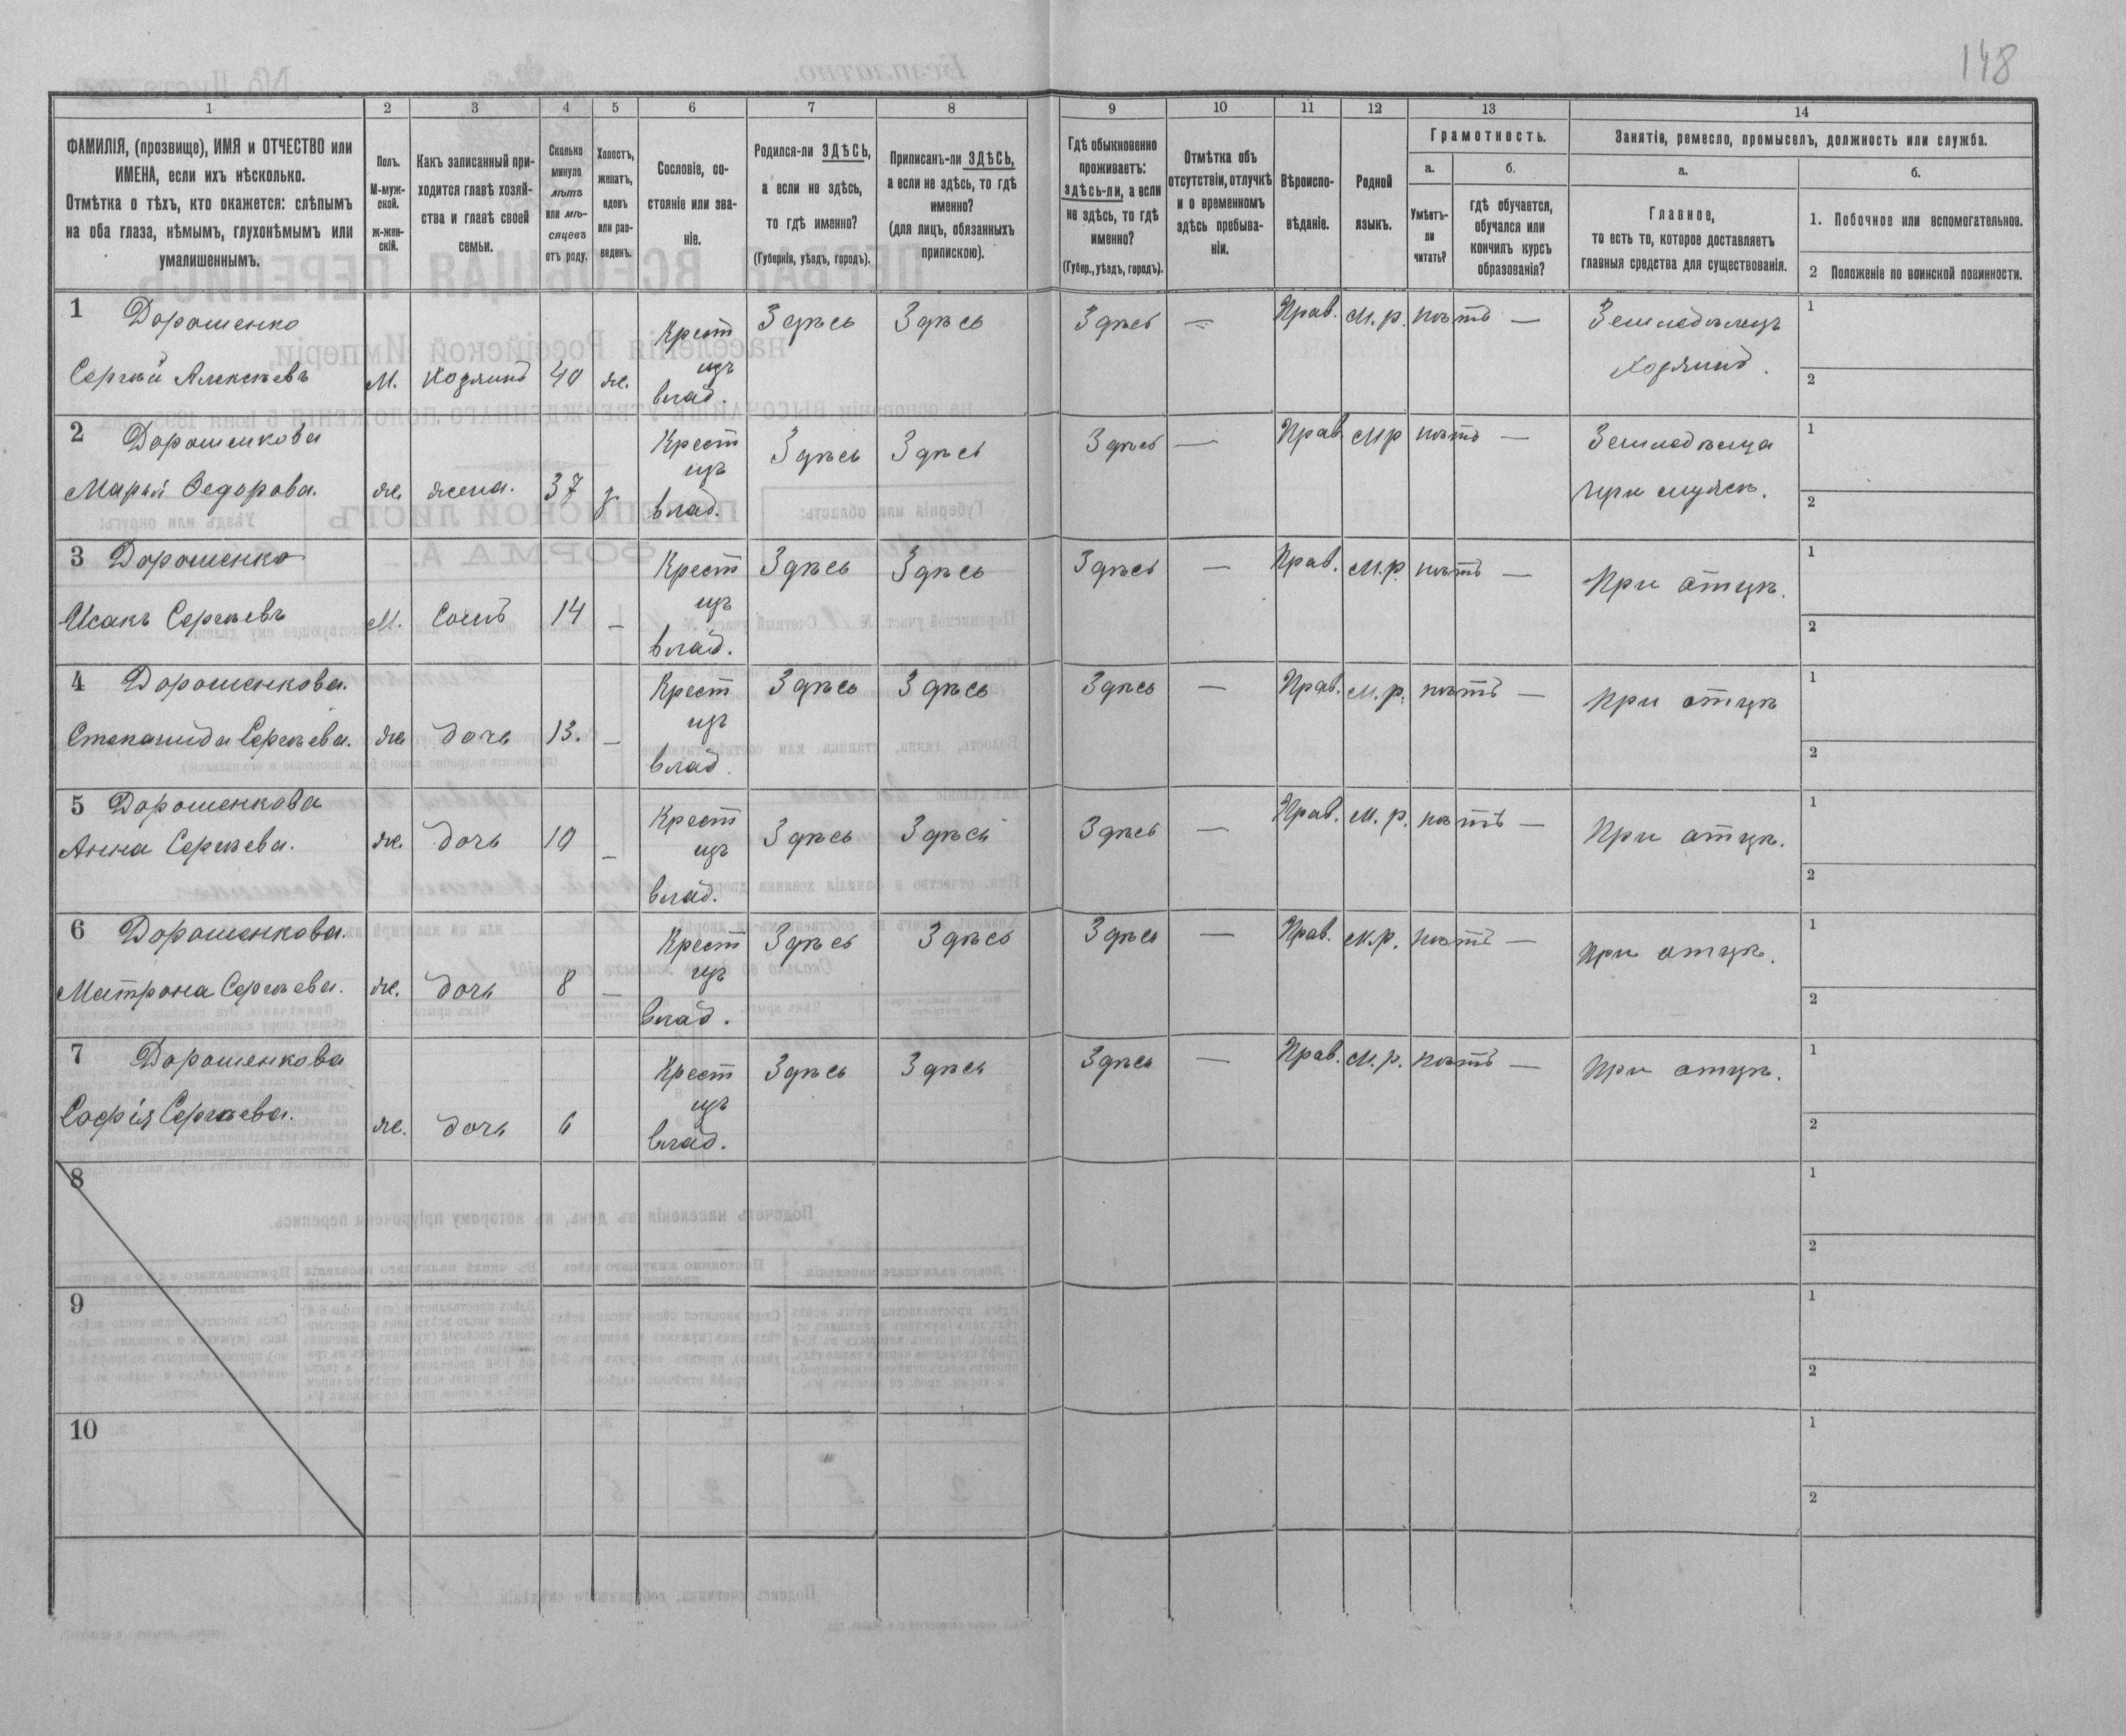 148
1 2 3 4 5 6 7 8 9 10 11 12 13 14
ФАМИЛІЯ, (прозвище), ИМЯ и ОТЧЕСТВО или
ИМЕНА, если ихъ нѣсколько.
Отмѣтка о тѣхъ, кто окажется: слѣпымъ
на оба глаза, нѣмымъ, глухонѣмымъ или
умалишеннымъ.
Полъ.
М-муж-
ской.
ж-жен-
скій.
Какъ записанный при-
ходится главѣ хозяй-
ства и главѣ своей
семьи.
Сколько
минуло
лѣтъ
или мѣ-
сяцевъ
отъ роду.
Холостъ,
женатъ,
вдовъ
или раз-
веденъ.
Сословіе, со-
стояніе или зва-
ніе.
Родился-ли ЗДѢСЬ,
а если не здѣсь,
то гдѣ именно?
(Губернія, уѣздъ, городъ).
Приписанъ-ли ЗДѢСЬ,
а если не здѣсь, то гдѣ
именно?
(для лицъ, обязанныхъ
припискою).
Гдѣ обыкновенно
проживаетъ:
здѣсь-ли, а если
не здѣсь, то гдѣ
именно?
(Губер., уѣздъ, городъ).
Отмѣтка объ
отсутствіи, отлучкѣ
и о временномъ
здѣсь пребыва-
ніи.
Вѣроиспо-
вѣданіе.
Родной
языкъ.
Грамотность.
а.
Умѣетъ-
ли
читать?
б.
гдѣ обучается,
обучался или
кончилъ курсъ
образованія?
Занятіе, ремесло, промыселъ, должность или служба.
а.
Главное,
то есть то, которое доставляетъ
главныя средства для существованія.
б.
1. Побочное или вспомогательное.
2 Положеніе по воинской повинности.
1 Дорошенко Крест Здѣсь Здѣсь Здѣсь — Прав. М. р. нѣтъ — Земледѣлецъ 1
Сергѣй Алексѣевъ М. Хозяинъ 40 же. изъ влад. Хозяинъ. 2
2 Дорошенкова Крест Здѣсь Здѣсь Здѣсь — Прав М р нѣтъ — 1
Марья Ѳедорова. же. жена. 37 з. изъ влад. при мужѣ. 2
3 Дорошенко Крест Здѣсь Здѣсь Здѣсь — Прав. М. р. нѣтъ — При отцѣ. 1
Исакъ Сергѣевъ М. Сынъ 14 — изъ влад. 2
4 Дорошенкова. Крест Здѣсь Здѣсь Здѣсь — Прав. М. р. нѣтъ — При отцѣ 1
Степанида Сергѣева. же дочь 13. — изъ влад. 2
5 Дорошенкова Крест Здѣсь Здѣсь Здѣсь — Прав. М. р. нѣтъ — При отцѣ. 1
Анна Сергѣева. же. дочь 10 — изъ влад. 2
6 Дорошенкова. Крест Здѣсь Здѣсь Здѣсь — Прав. М. р. нѣтъ — При отцѣ. 1
Матрона Сергѣева. же. дочь 8 — изъ влад. 2
7 Дорошенкова Крест Здѣсь Здѣсь Здѣсь — Прав. М. р. нѣтъ — При отцѣ. 1
Софія Сергѣева. же. дочь 6 изъ влад. 2
8 1
2
9 1
2
10 1
2